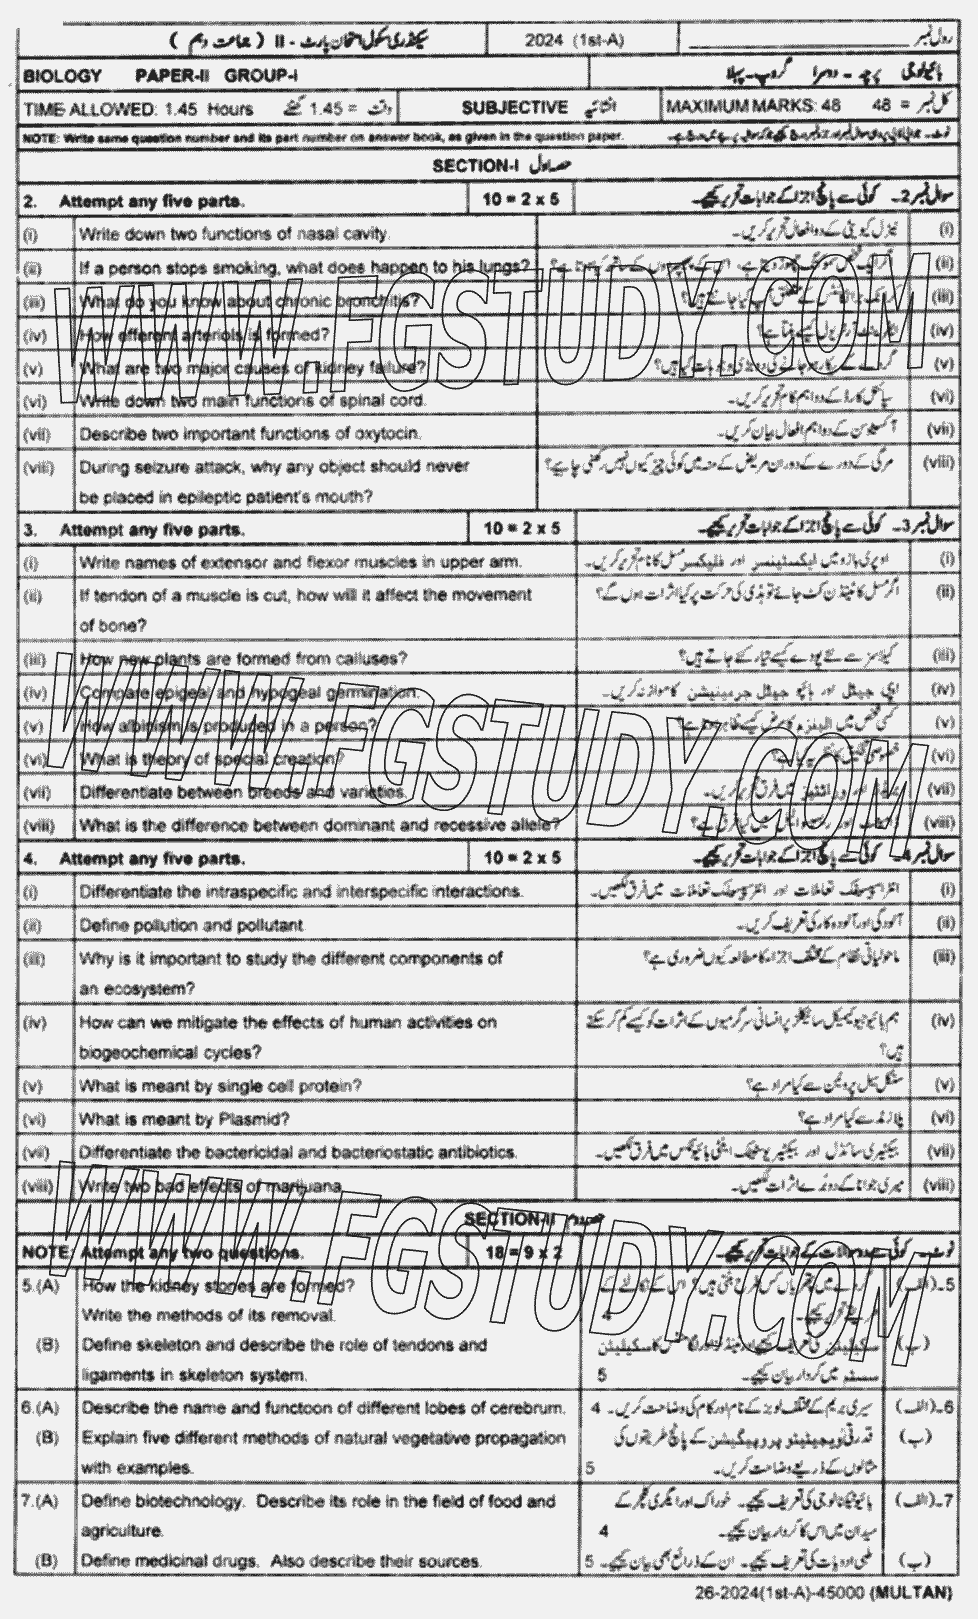 رول نمبر ____________ 2024 (1st-A) سیکنڈری سکول امتحان پارٹ - II ( جماعت دہم )
BIOLOGY PAPER-II GROUP-I بائیولوجی پرچہ - دوسرا گروپ - پہلا
TIME ALLOWED: 1.45 Hours وقت = 1.45 گھنٹے SUBJECTIVE انشائیہ MAXIMUM MARKS: 48 کل نمبر = 48
NOTE: Write same question number and its part number on answer book, as given in the question paper.
SECTION-I حصہ اول
2. Attempt any five parts. 10 = 2 x 5 سوال نمبر 2۔ کوئی سے پانچ اجزا کے جوابات تحریر کیجیے۔
(i) Write down two functions of nasal cavity. نیزل کیویٹی کے دو افعال تحریر کریں۔ (i)
(ii) If a person stops smoking, what does happen to his lungs? (ii)
(iii) What do you know about chronic bronchitis? (iii)
(iv) How efferent arteriols is formed? (iv)
(v) What are two major causes of kidney failure? (v)
(vi) Write down two main functions of spinal cord. سپائنل کارڈ کے دو اہم کام تحریر کریں۔ (vi)
(vii) Describe two important functions of oxytocin. آکسیٹوسن کے دو اہم افعال بیان کریں۔ (vii)
(viii) During seizure attack, why any object should never مرگی کے دورے کے دوران مریض کے منہ میں کوئی چیز کیوں نہیں رکھنی چاہیے؟ (viii)
be placed in epileptic patient's mouth?
3. Attempt any five parts. 10 = 2 x 5 سوال نمبر 3۔ کوئی سے پانچ اجزا کے جوابات تحریر کیجیے۔
(i) Write names of extensor and flexor muscles in upper arm. اوپری بازو میں ایکسٹینسر اور فلیکسر مسل کا نام تحریر کریں۔ (i)
(ii) If tendon of a muscle is cut, how will it affect the movement اگر مسل کا ٹینڈن کٹ جائے تو ہڈی کی حرکت پر کیا اثرات ہوں گے؟ (ii)
of bone?
(iii) How new plants are formed from calluses? کیلسز سے نئے پودے کیسے تیار کئے جاتے ہیں؟ (iii)
(iv) Compare epigeal and hypogeal germination. ایپی جیئل اور ہائپو جیئل جرمینیشن کا موازنہ کریں۔ (iv)
(v) How albinism is produced in a person? (v)
(vi) What is theory of special creation? (vi)
(vii) Differentiate between breeds and varieties. (vii)
(viii) What is the difference between dominant and recessive allele? (viii)
4. Attempt any five parts. 10 = 2 x 5 سوال نمبر 4۔ کوئی سے پانچ اجزا کے جوابات تحریر کیجیے۔
(i) Differentiate the intraspecific and interspecific interactions. انٹراسپیسیفک تعاملات اور انٹرسپیسیفک تعاملات میں فرق لکھیں۔ (i)
(ii) Define pollution and pollutant آلودگی اور آلودہ کار کی تعریف کریں۔ (ii)
(iii) Why is it important to study the different components of ماحولیاتی نظام کے مختلف اجزاء کا مطالعہ کیوں ضروری ہے؟ (iii)
an ecosystem?
(iv) How can we mitigate the effects of human activities on ہم بائیوجیوکیمیکل سائیکلز پر انسانی سرگرمیوں کے اثرات کو کیسے کم کر سکتے (iv)
biogeochemical cycles? ہیں؟
(v) What is meant by single cell protein? سنگل سیل پروٹین سے کیا مراد ہے؟ (v)
(vi) What is meant by Plasmid? پلازمڈ سے کیا مراد ہے؟ (vi)
(vii) Differentiate the bactericidal and bacteriostatic antibiotics. بیکٹیری سائڈل اور بیکٹیریوسٹیٹک اینٹی بائیوٹکس میں فرق لکھیں۔ (vii)
(viii) Write two bad effects of marijuana. میری جوانا کے دو بُرے اثرات لکھیں۔ (viii)
SECTION-II حصہ دوم
NOTE: Attempt any two questions. 18 = 9 x 2 نوٹ۔ کوئی سے دو سوالات کے جوابات تحریر کیجیے۔
5.(A) How the kidney stones are formed? 5۔(الف)
Write the methods of its removal. 4
(B) Define skeleton and describe the role of tendons and (ب)
ligaments in skeleton system. سسٹم میں کردار بیان کیجیے۔ 5
6.(A) Describe the name and functoon of different lobes of cerebrum. سیری برم کے مختلف لوبز کے نام اور کام کی وضاحت کریں۔ 4 6۔(الف)
(B) Explain five different methods of natural vegetative propagation قدرتی ویجیٹیٹو پروپیگیشن کے پانچ طریقوں کی (ب)
with examples. مثالوں کے ذریعے وضاحت کریں۔ 5
7.(A) Define biotechnology. Describe its role in the field of food and بائیوٹیکنالوجی کی تعریف کیجیے۔ خوراک اور ایگری کلچر کے 7۔(الف)
agriculture. میدان میں اس کا کردار بیان کیجیے۔ 4
(B) Define medicinal drugs. Also describe their sources. طبی ادویات کی تعریف کیجیے۔ ان کے ذرائع بھی بیان کیجیے۔ 5 (ب)
26-2024(1st-A)-45000 (MULTAN)
WWW.FGSTUDY.COM
WWW.FGSTUDY.COM
WWW.FGSTUDY.COM